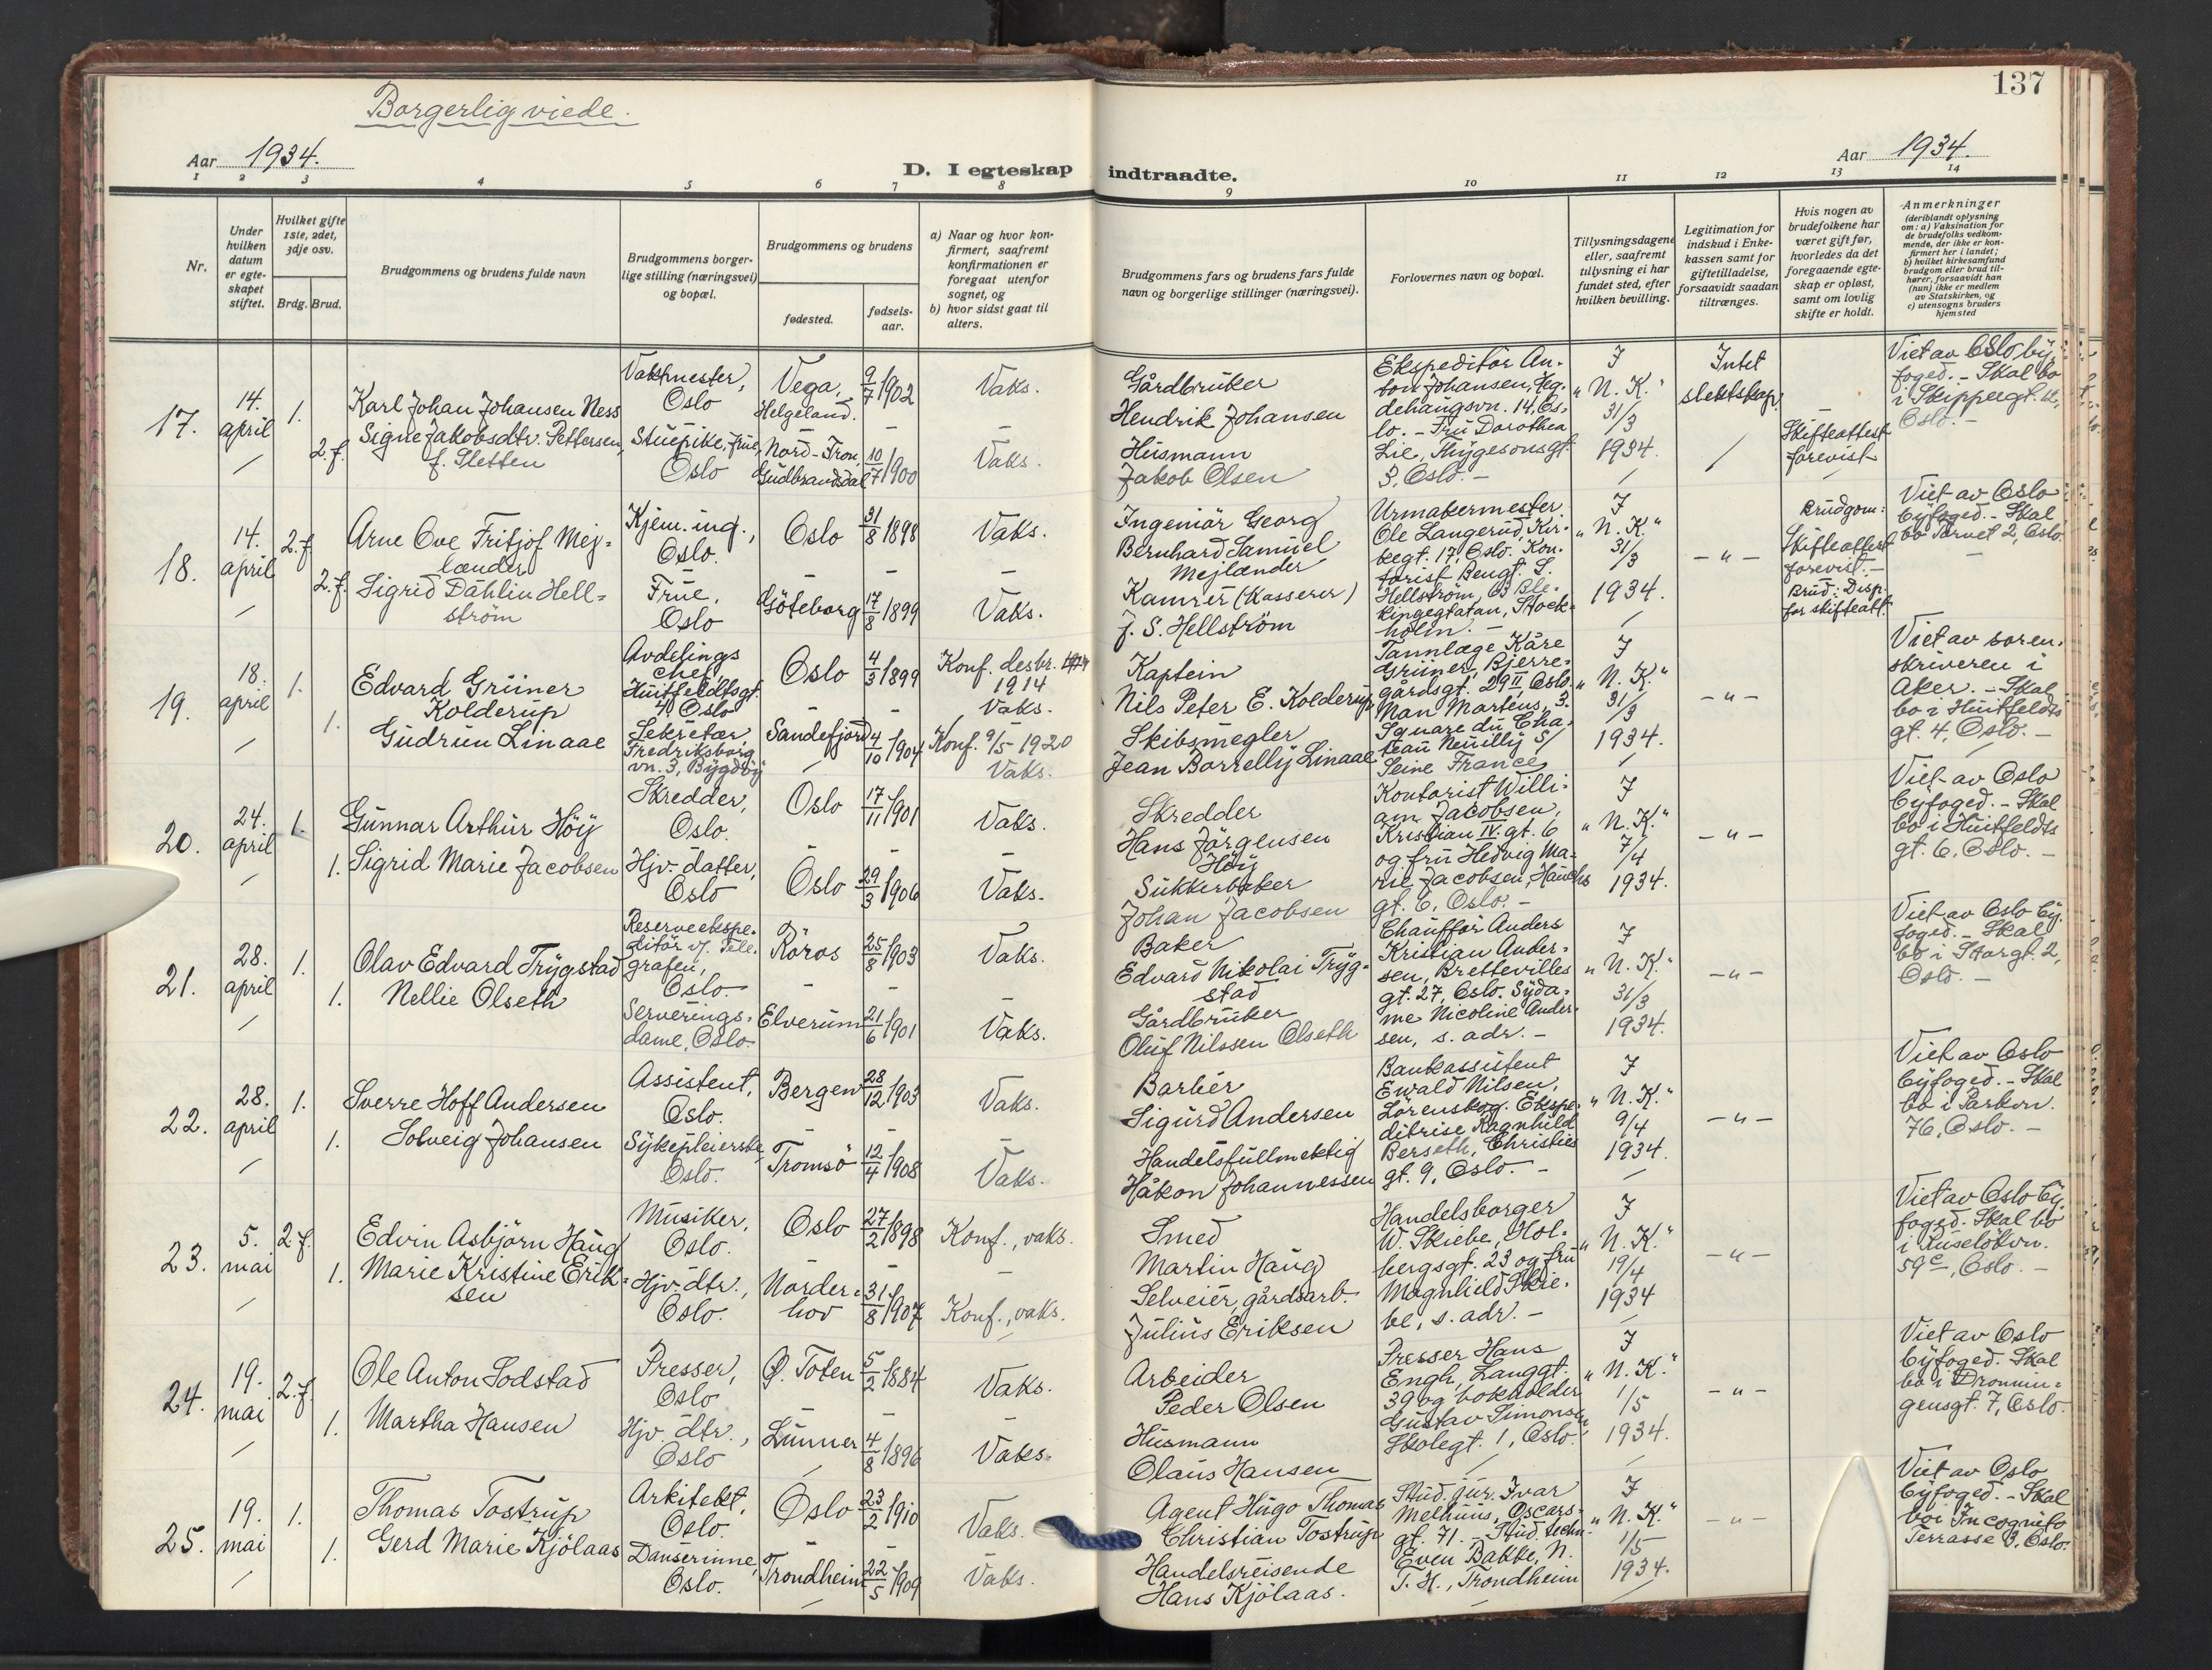 137
Borgerlig viede.
Aar 1934.
D. I egteskap indtraadte.
Aar 1934.
1 2 3 4 5 6 7 8 9 10 11 12 13 14
Nr.
Under hvilken datum er egteskapet stiftet.
Hvilket gifte 1ste, 2det, 3dje osv.
Brdg. Brud.
Brudgommens og brudens fulde navn
Brudgommens borgerlige stilling (næringsvei) og bopæl.
Brudgommens og brudens
fødested.
fødselsaar.
a) Naar og hvor konfirmert, saafremt konfirmationen er foregaat utenfor sognet, og
b) hvor sidst gaat til alters.
Brudgommens fars og brudens fars fulde navn og borgerlige stillinger (næringsvei).
Forlovernes navn og bopæl.
Tillysningsdagene eller, saafremt tillysning ei har fundet sted, efter hvilken bevilling.
Legitimation for indskud i Enkekassen samt for giftetilladelse, forsaavidt saadan tiltrænges.
Hvis nogen av brudefolkene har været gift før, hvorledes da det foregaaende egteskap er opløst, samt om lovlig skifte er holdt.
Anmerkninger
(deriblandt oplysning om: a) Vaksination for de brudefolks vedkommende, der ikke er konfirmert her i landet; b) hvilket kirkesamfund brudgom eller brud tilhører, forsaavidt han (hun) ikke er medlem av Statskirken, og c) utensogns bruders hjemsted
17.
14. april
1.
2. f.
Karl Johan Johansen Ness
Signe Jakobsdtr. Pettersen, f. Sletten
Vaktmester, Oslo
Stuepike, frue, Oslo
Vega, Helgeland.
Nord-Fron, Gudbrandsdal
9/7 1902
10/7 1900
Vaks.
Vaks.
Gårdbruker
Hendrik Johansen
Husmann
Jakob Olsen
Ekspeditør Anton Johansen, 14, Oslo. - Fru Dorothea Lie, Thygesonsgt. 3, Oslo. -
I "N. K." 31/3 1934.
Intet slektskap.
Skifteattest forevist
Viet av Oslo byfoged. - Skal bo i Skippergt. Oslo. -
18.
14. april
2. f.
2. f.
Arne Ove Fritjof Mejlænder
Sigrid Dahlin Hellström
Kjem. ing., Oslo.
Frue, Oslo
Oslo
Göteborg
31/8 1898
17/8 1899
Vaks.
Vaks.
Ingeniør Georg Bernhard Samuel Mejlænder
Kamrer (Kasserer) J. S. Hellström
Urmakermester Ole Langerud, Kirkegt. 17, Oslo. Kontorist Bengt S. Hellström, 63 Blekingegatan, Stockholm. -
I "N. K." 31/3 1934.
- " -
Brudgom: Skifteattest forevist. -
Brud: Disp. for skifteatt.
Viet av Oslo byfoged. - Skal bo Tørvet 2, Oslo.
19.
18. april
1.
1.
Edvard Grüner Kolderup
Gudrun Linaae
Avdelings chef, Huitfeldtsgt. 4, Oslo
Sekretær, Fredriksborgvn. 3, Bygdöy
Oslo
Sandefjord
4/3 1899
4/10 1904
Konf. desbr. 1914 Vaks.
Konf. 9/5 1920 Vaks.
Kaptein
Nils Peter E. Kolderup
Skibsmegler
Jean Borrelly Linaae
Tannlæge Kåre Grüner, Bjerregårdsgt. 29 II, Oslo. Man Martens, 3. Square du Chateau Neuilly S/ Seine France
I "N. K." 31/3 1934.
- " -
Viet av sorenskriveren i Aker. - Skal bo i Huitfeldts gt. 4, Oslo. -
20.
24. april
1.
1.
Gunnar Arthur Höy
Sigrid Marie Jacobsen
Skredder, Oslo.
Hjv. datter, Oslo
Oslo
Oslo
17/11 1901
29/3 1906
Vaks.
Vaks.
Skredder
Hans Jörgensen Höy
Sukkerbaker
Johan Jacobsen
Kontorist William Jacobsen, Kristian IV. gt. 6 og fru Hedvig Marie Jacobsen, Hauchs gt. 6, Oslo. -
I "N. K." 7/4 1934.
- " -
Viet av Oslo byfoged. - Skal bo i Huitfeldts gt. 6, Oslo. -
21.
28. april
1.
1.
Olav Edvard Trygstad
Nellie Olseth
Reserveekspeditør v/ Telegrafen, Oslo.
Serveringsdame, Oslo.
Röros
Elverum
25/8 1903
21/6 1901
Vaks.
Vaks.
Baker
Edvard Nikolai Trygstad
Gårdbruker
Oluf Nilssen Olseth
Chauffør Anders Kristian Andersen, Brettevilles gt. 27, Oslo. Sydame Nicoline Andersen, s. adr. -
I "N. K." 31/3 1934.
- " -
Viet av Oslo byfoged. - Skal bo i Storgt. 2, Oslo. -
22.
28. april
1.
1.
Sverre Hoff Andersen
Solveig Johansen
Assistent, Oslo.
Sykepleierske, Oslo.
Bergen
Tromsö
28/12 1903
12/4 1908
Vaks.
Vaks.
Barber
Sigurd Andersen
Handelsfullmektig
Håkon Johannessen
Bankassistent Ewald Nilsen, Lörenskog. Ekspeditrise Ragnhild Berseth, Christies gt. 9, Oslo. -
I "N. K." 9/4 1934.
- " -
Viet av Oslo byfoged. - Skal bo i Parkvn. 76, Oslo. -
23.
5. mai
2. f.
1.
Edvin Asbjörn Haug
Marie Kristine Eriksen
Musiker, Oslo.
Hjv. dtr., Oslo.
Oslo
Norderhov
27/2 1898
31/8 1907
Konf., vaks.
Konf., vaks.
Smed
Martin Haug
Selveier, gårdsarb.
Julius Eriksen
Handelsborger W. Skiebe, Holbergsgt. 23 og fru Magnhild Skiebe, s. adr. -
I "N. K." 19/4 1934
- " -
Viet av Oslo byfoged. Skal bo i Ruseløkvn. 59c, Oslo. -
24.
19. mai
2. f.
1.
Ole Anton Sodstad
Martha Hansen
Presser, Oslo
Hjv. dtr., Oslo
Ø. Toten
Lunner
5/2 1884
4/8 1896
Vaks.
Vaks.
Arbeider
Peder Olsen
Husmann
Olaus Hansen
Presser Hans Engh, Langgt. 39 og bokholder Gustav Simonsen, Skolegt. 1, Oslo.
I "N. K." 1/5 1934.
- " -
Viet av Oslo byfoged. Skal bo i Dronningensgt. 7, Oslo.
25.
19. mai
1.
1.
Thomas Tostrup
Gerd Marie Kjölaas
Arkitekt, Oslo.
Danserinne, Oslo.
Oslo
Trondheim
23/2 1910
22/5 1909
Vaks.
Vaks.
Agent Hugo Thomas Christian Tostrup
Handelsreisende
Hans Kjölaas.
Stud. jur. Ivar Melhuus, Oscarsgt. 71. - Stud. techn. Even Bakke, N. T. H., Trondheim
I "N. K." 1/5 1934.
- " -
Viet av Oslo byfoged. - Skal bo i Incognito Terrasse 3, Oslo.